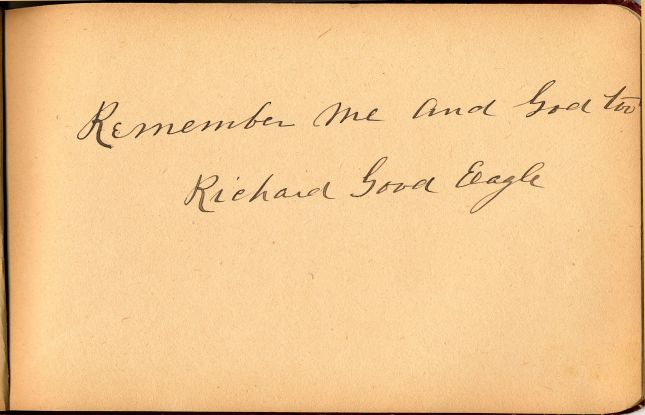 Remember Me And God too
Richard Good Eagle